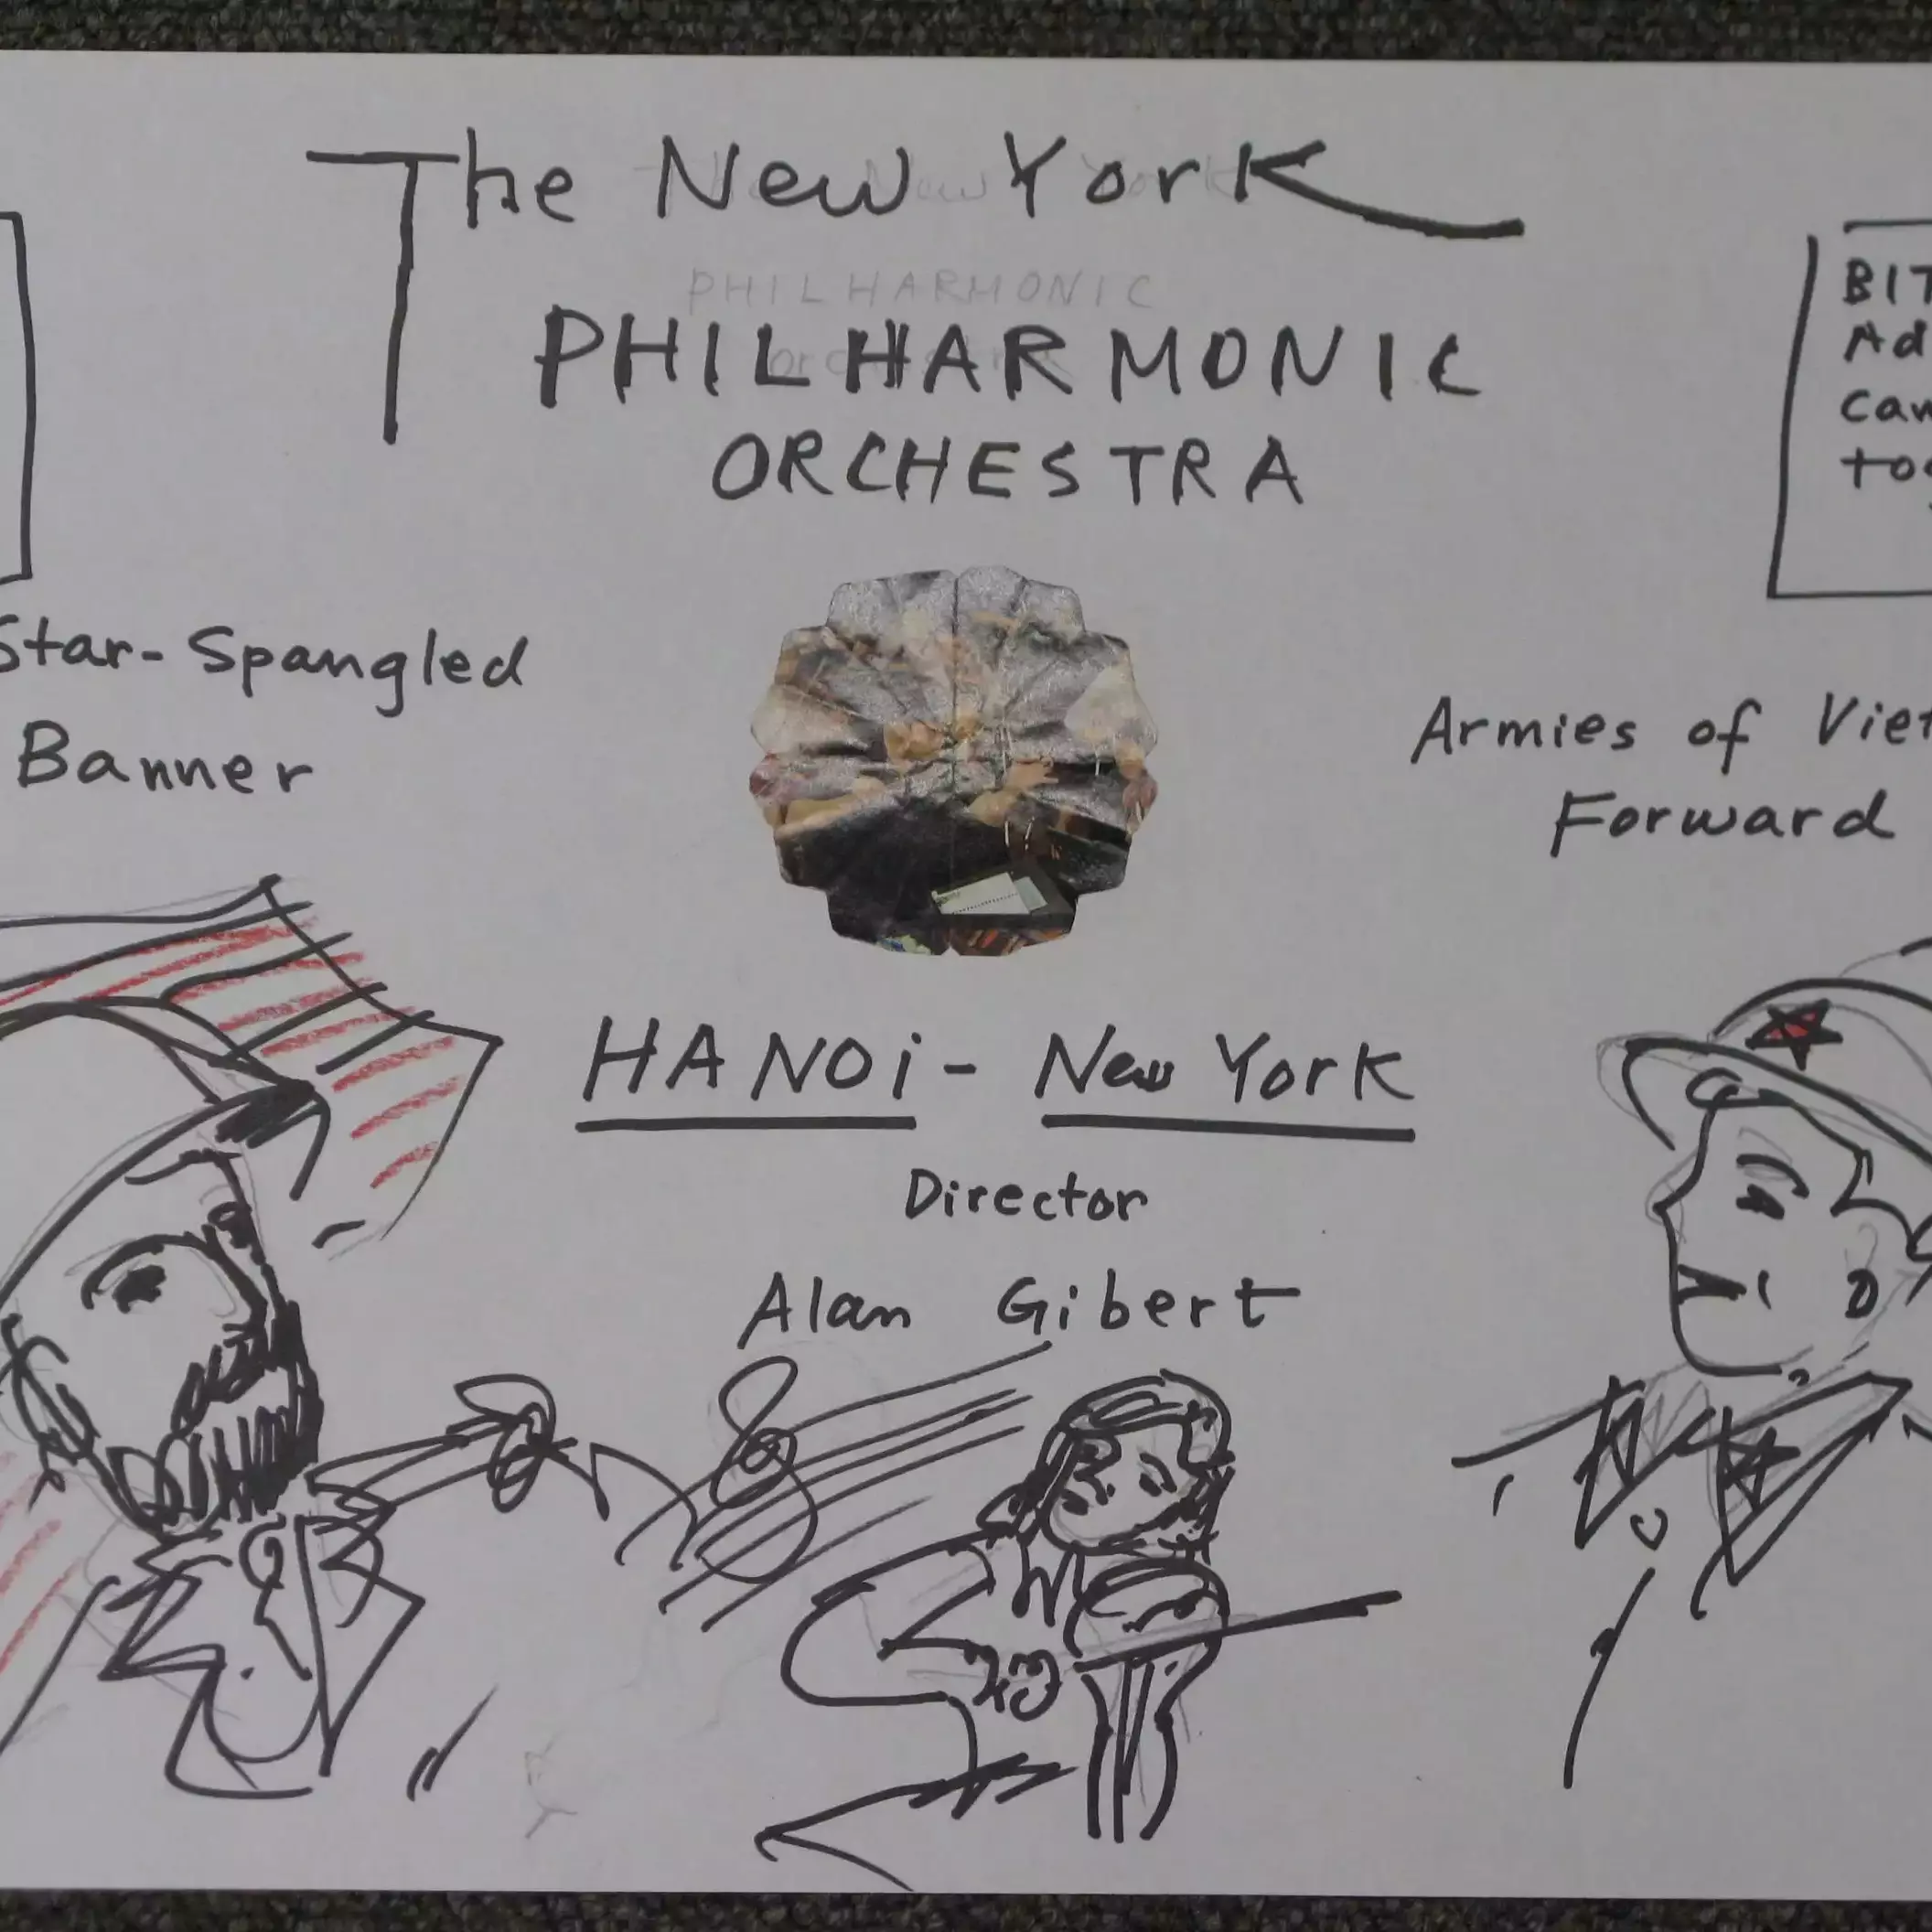 The New York
PHILHARMONIC
PHILHARMONIC
ORCHESTRA
Star-Spangled
Banner
Armies of
Forward
HANOi - New York
Director
Alan Gibert